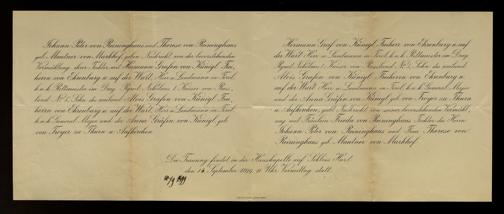 Johann Peter von Reininghaus und Therese von Reininghaus
geb. Mautner von Markhof, geben Nachricht von der bevorstehenden
Vermählung ihrer Tochter mit Hermann Grafen von Künigl, Frei-
herrn von Ehrenburg u. auf der Wart, Herr u. Landmann in Tirol,
k. u. k. Rittmeister im Drag.
Sohn des weiland Alois Grafen von Künigl, Frei-
herrn von Ehrenburg u. auf der Wart, Herr u. Landmann in Tirol,
k. u. k. General Major und der Anna Gräfin von Künigl geb.
von Troyer zu Thurn u. Aufkirchen
Hermann Graf von Künigl, Freiherr von Ehrenburg u. auf
der Wart, Herr u. Landmann in Tirol, k. u. k. Rittmeister im Drag.
Sohn des weiland
Alois Grafen von Künigl, Freiherrn von Ehrenburg u.
auf der Wart, Herr u. Landmann in Tirol, k. u. k. General Major
und der Anna Gräfin von Künigl geb. von Troyer zu Thurn
u. Aufkirchen, gibt Nachricht von seiner bevorstehenden Vermählung
mit Fräulein Frieda von Reininghaus, Tochter des Herrn
Johann Peter von Reininghaus und Frau Therese von
Reininghaus geb. Mautner von Markhof.
Die Trauung findet in der Hauskapelle auf Schloss Hart,
den September 11 Uhr Vormittag statt.